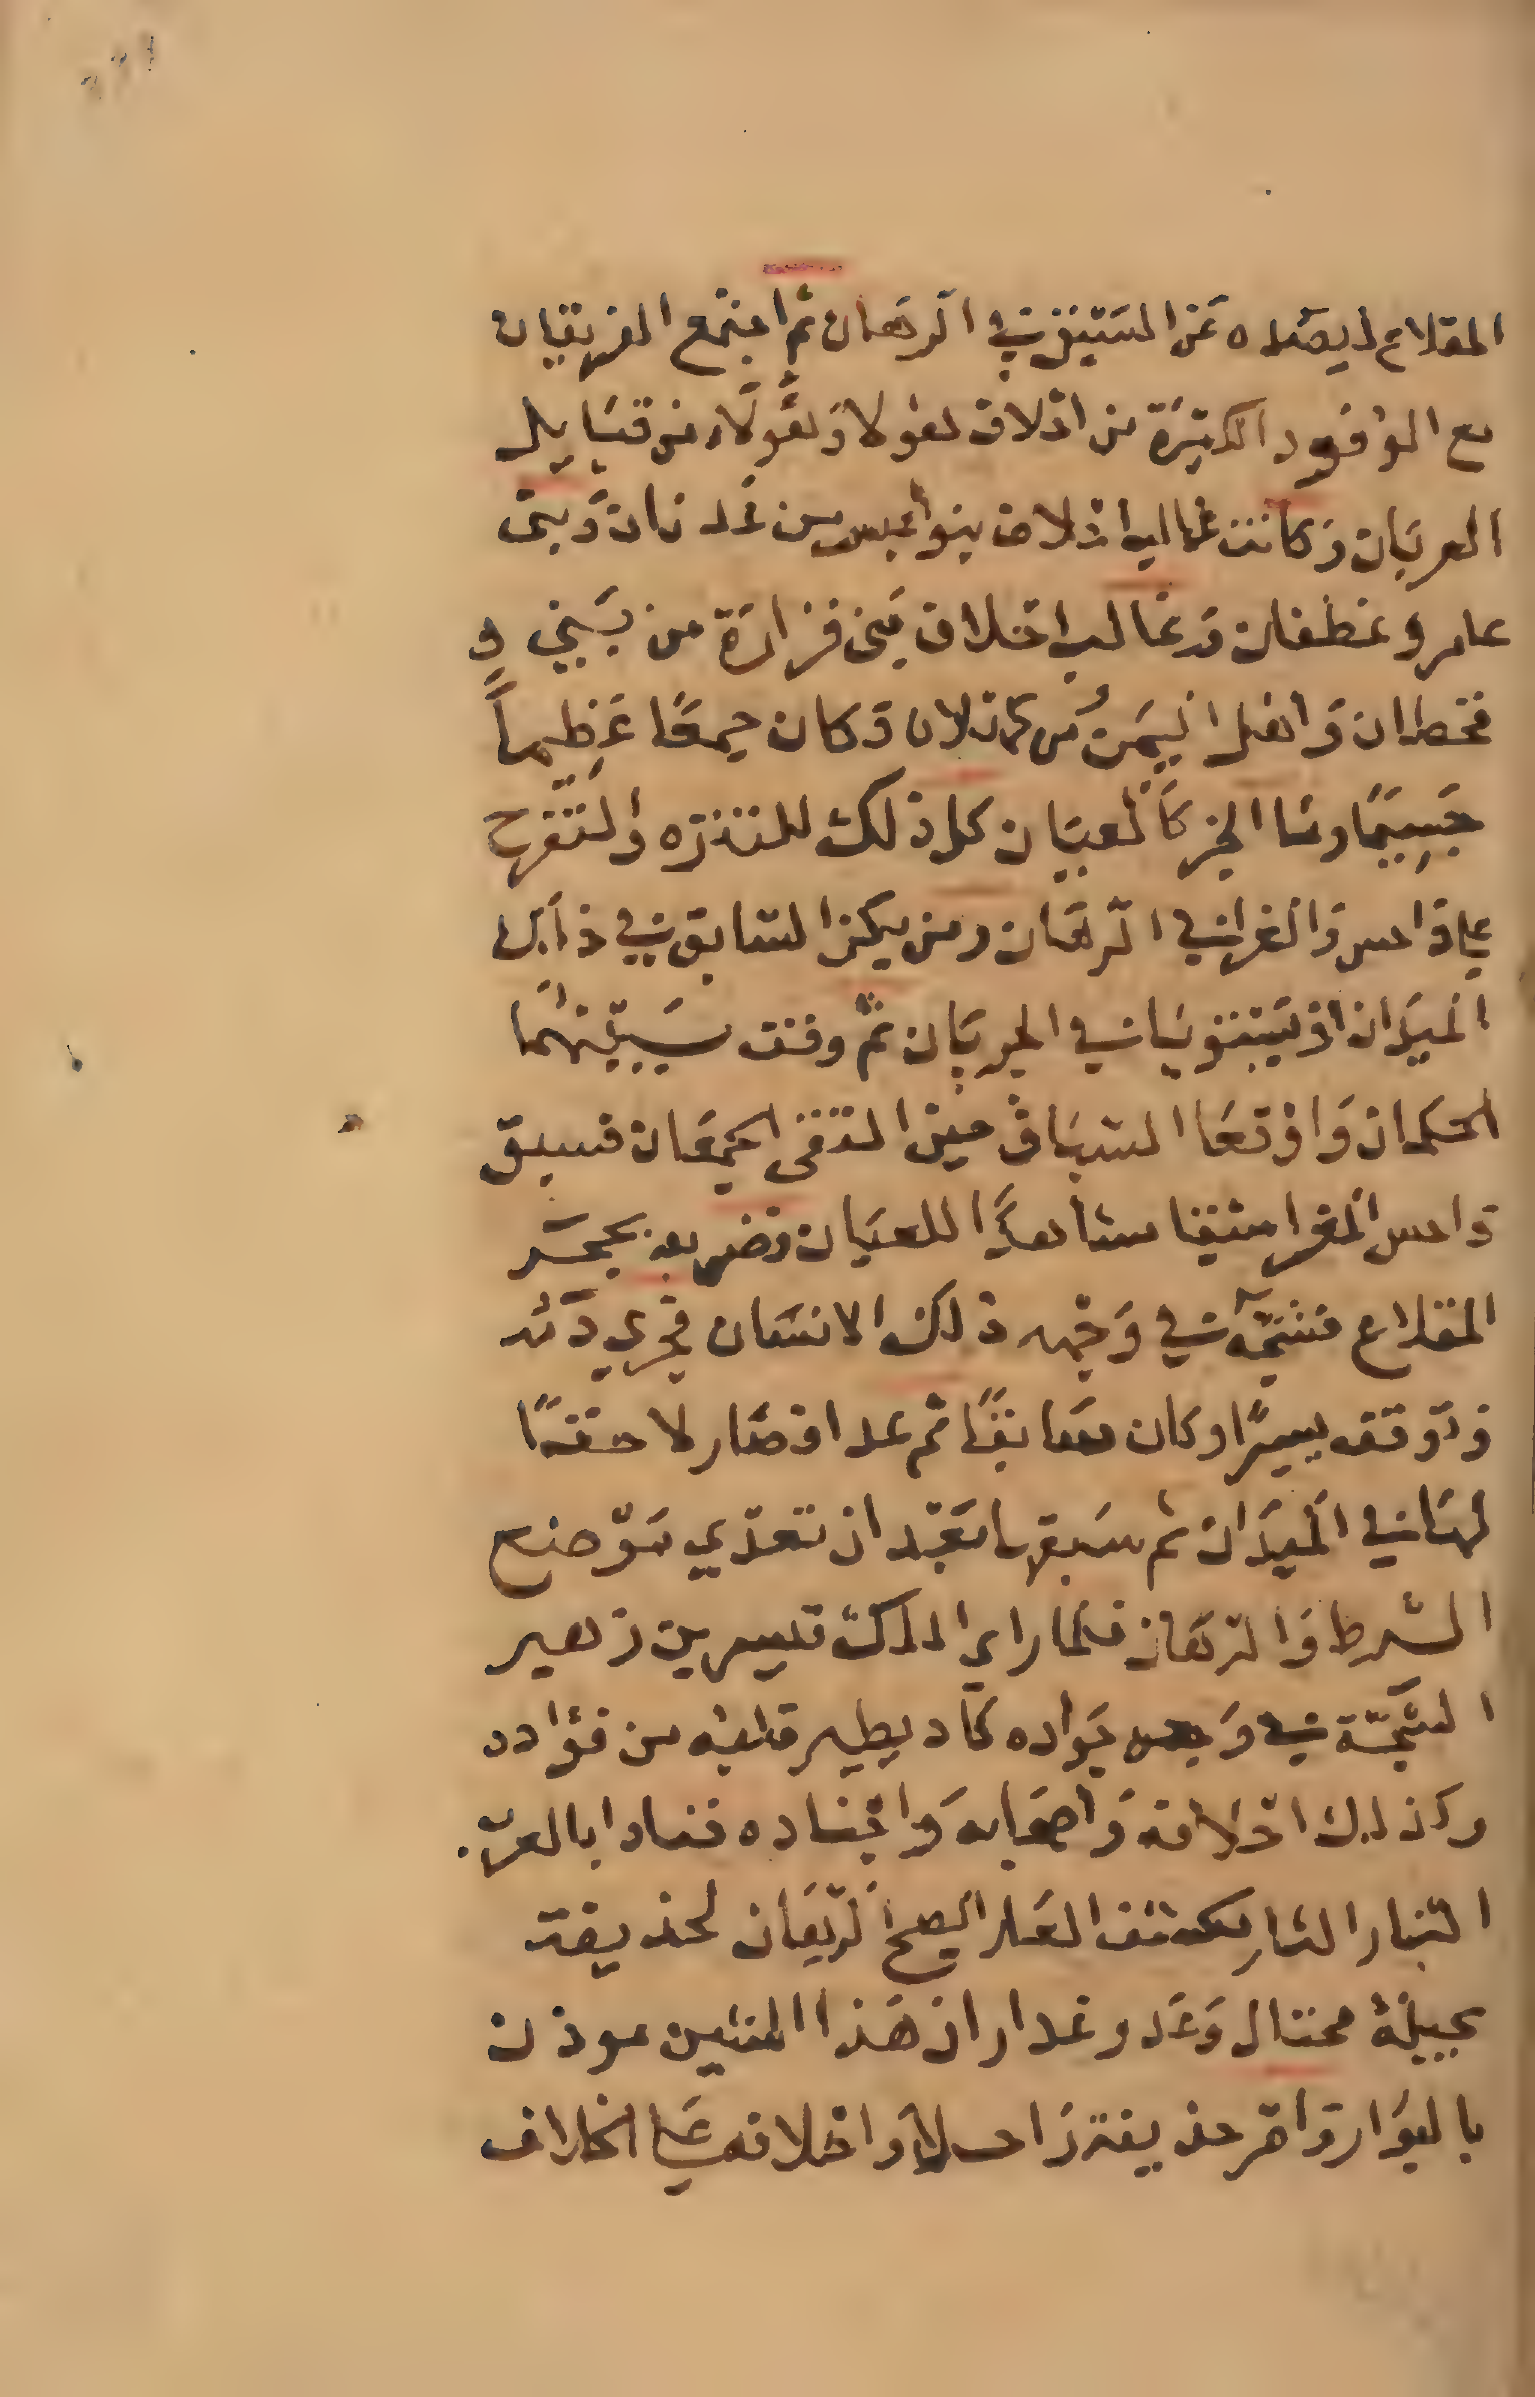 المقلاع ليصده عن السبق في الرهان ثم اجتمع الفريقان
مع الوفود الكثيرة من احلاف هولا وهولاء من قبايل
العربان وكانت غالب احلاف بنو اعبس من عدنان وبني
عامر و غطفان وغالب احلاف بني فزارة من بني و
قحطان واهل اليمن من كهلان وكان جمعًا عظيماً
جسيمًا وما الخبر كالعيان كل ذلك للتنزه والتفرج
على داحس والغبرا في الرهان ومن يكن السابق في ذلك
الميدان اذ يستويان في الجريان ثم وقت بينهما
الحكمان واوقعا السباق حين التقى الجمعان فسبق
داحس الغبرا سبقا مشاهدًا للعيان فضربه بحجر
المقلاع فشجه في وجهه ذلك الانسان فجرى دمه
فتوقف يسيرًا وكان سابقًا ثم عدا فصار لاحقًا
لها في الميدان ثم سبقها بعد ان تعدي موضع
الشرط والرهان فلما راي الملك قيس بن زهير
الشجة في وجه جواده كاد يطير قلبه من فؤاده
وكذلك احلافه واصحابه واجناده فنادا بالعر.
النار النار كشف العار اليصح الريعان لحذيفة
بحيلة محتال وغدر وغدار ان هذا المئين موذن
بالبوار واقر حذيفة زاحلا واحلافه على الخلاف